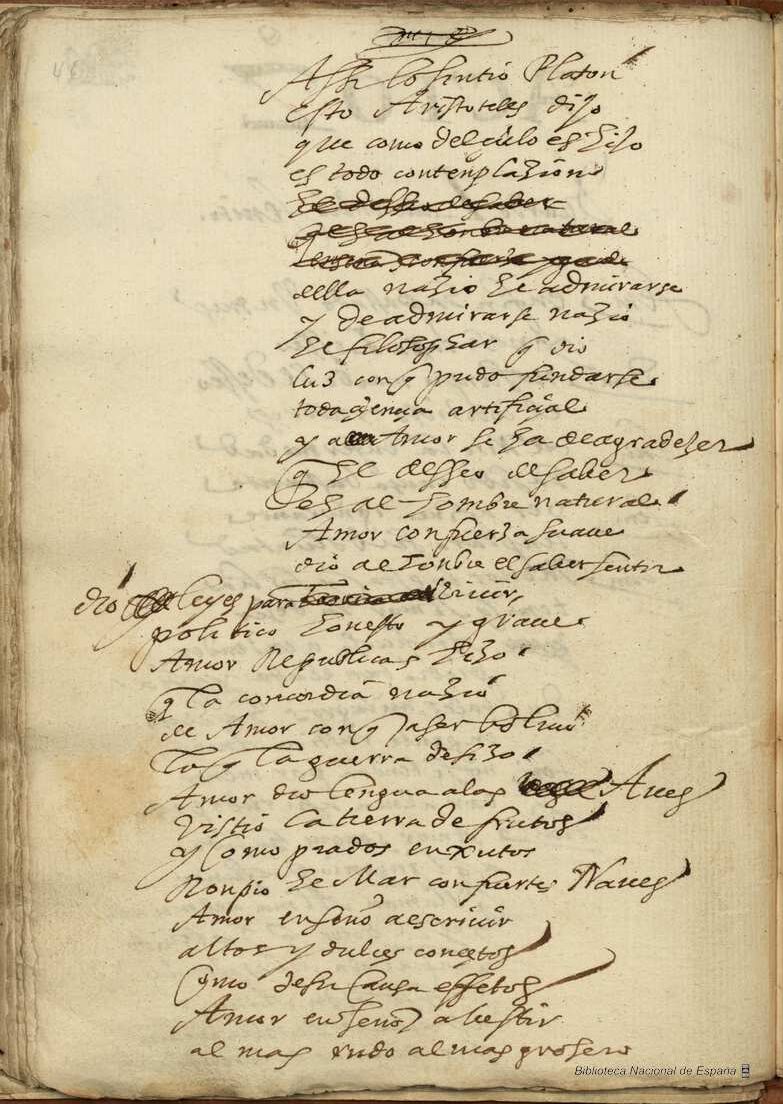 Assi lo sintio Platon
esto Aristoteles dijo
que como del çielo es hijo
es todo contenplazion
el deseo de saber
q es al honbre natural
della nazio el admirarse
y de admirarse nazio
el filosophar q dio
luz con q pudo fundarse
toda çiençia artifiçial
y a Amor se ha de agradezer
q el desseo de saber
es al hombre natural
Amor con fuerza suaue
dio al honbre el saber sentir
dio leyes para viuir
politico honesto y graue
Amor Republicas hizo
q la concordia nazio
de Amor con q a ser boluio
lo q la guerra deshizo
Amor dio lengua a las Aues
vistio la tierra de frutos
y como prados enxutos
Ronpio el Mar con fuertes Naues
Amor enseño a escriuir
altos y dulces conçetos
como de su causa effetos
Amor enseño a bestir
al mas rudo al mas grosero
Biblioteca Nacional de España